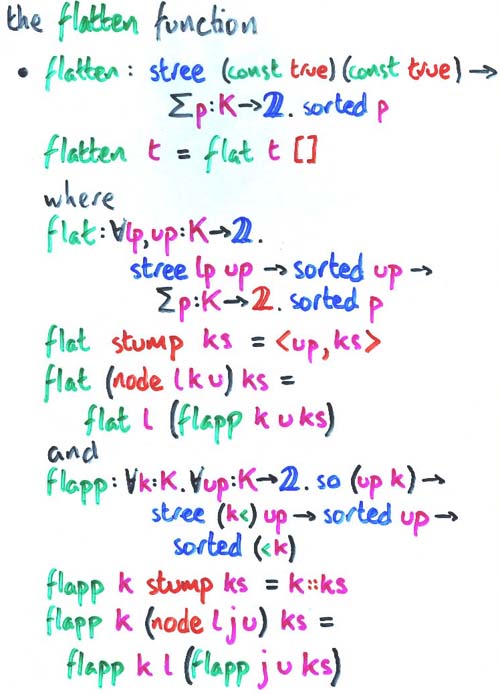 the flatten function
• flatten : stree (const true) (const true) →
Σp:K→𝟚. sorted p
flatten t = flat t []
where
flat : ∀lp,up:K→𝟚.
stree lp up → sorted up →
Σp:K→𝟚. sorted p
flat stump ks = <up,ks>
flat (node l k u) ks =
flat l (flapp k u ks)
and
flapp : ∀k:K. ∀up:K→𝟚. so (up k) →
stree (k<) up → sorted up →
sorted (<k)
flapp k stump ks = k::ks
flapp k (node l j u) ks =
flapp k l (flapp j u ks)